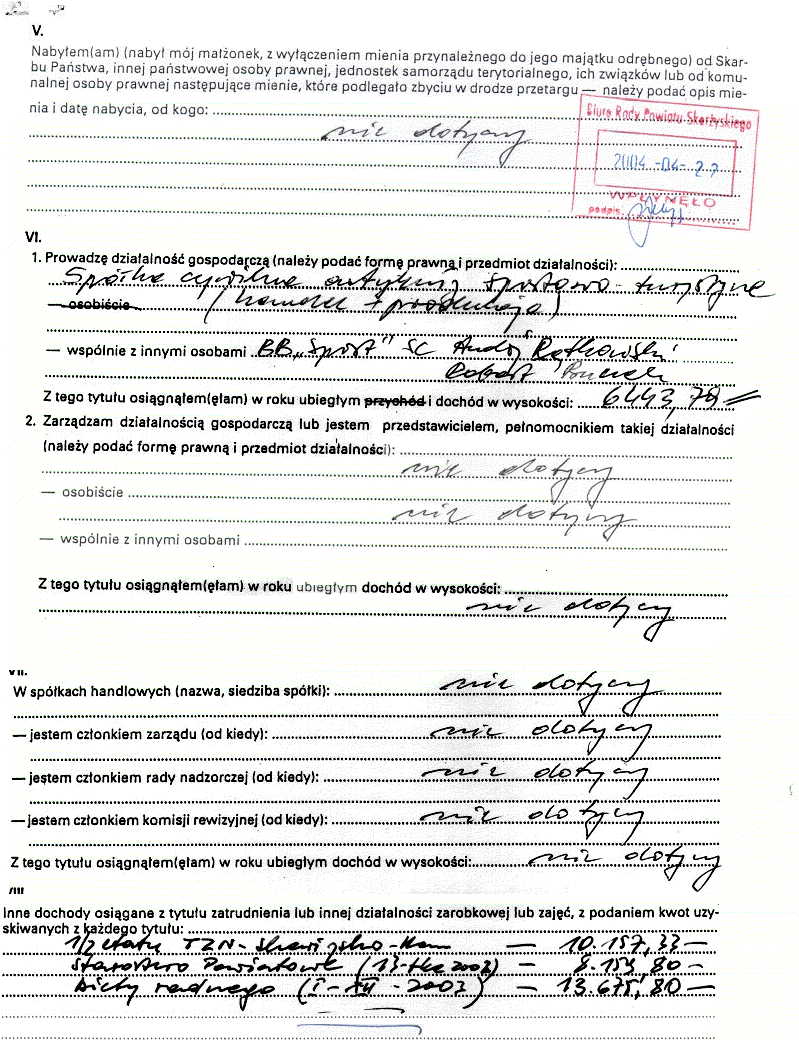 V.
Nabyłem(am) (nabył mój małżonek, z wyłączeniem mienia przynależnego do jego majątku odrębnego) od Skar-
bu Państwa, innej państwowej osoby prawnej, jednostek samorządu terytorialnego, ich związków lub od komu-
nalnej osoby prawnej następujące mienie, które podlegało zbyciu w drodze przetargu — należy podać opis mie-
nia i datę nabycia, od kogo:
Biuro Rady Powiatu Skarżyskiego
nie dotyczy
2004 -04- 27
WPŁYNĘŁO
podpis
VI.
1. Prowadzę działalność gospodarczą (należy podać formę prawną i przedmiot działalności):
Spółka cywilna artykuły sportowo-turystyczne
— osobiście (handel + produkcja)
— wspólnie z innymi osobami BB „Sport" SC Andrzej Rątkowski
Robert
Z tego tytułu osiągnąłem(ęłam) w roku ubiegłym przychód i dochód w wysokości: 6443,79
2. Zarządzam działalnością gospodarczą lub jestem przedstawicielem, pełnomocnikiem takiej działalności
(należy podać formę prawną i przedmiot działalności):
nie dotyczy
— osobiście
nie dotyczy
— wspólnie z innymi osobami
Z tego tytułu osiągnąłem(ęłam) w roku ubiegłym dochód w wysokości:
nie dotyczy
VII.
W spółkach handlowych (nazwa, siedziba spółki): nie dotyczy
— jestem członkiem zarządu (od kiedy): nie dotyczy
— jestem członkiem rady nadzorczej (od kiedy): nie dotyczy
— jestem członkiem komisji rewizyjnej (od kiedy): nie dotyczy
Z tego tytułu osiągnąłem(ęłam) w roku ubiegłym dochód w wysokości: nie dotyczy
VIII
Inne dochody osiągane z tytułu zatrudnienia lub innej działalności zarobkowej lub zajęć, z podaniem kwot uzy-
skiwanych z każdego tytułu:
1/2 etatu TZN-Skarżysko-Kam — 10.157,33 —
Starostwo Powiatowe (13-tka 2002) — 8.153,80 —
Diety radnego (I-XII-2003) — 13.675,80 —